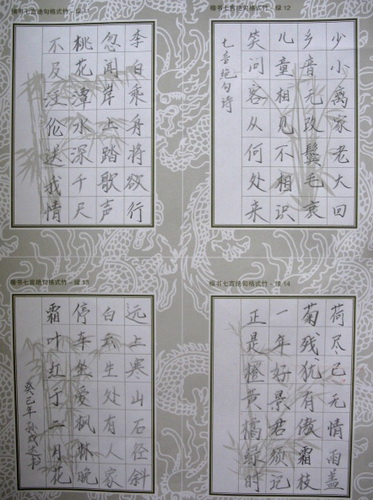 楷书七言绝句格式竹 - 绿 11
李白乘舟将欲行
忽闻岸上踏歌声
桃花潭水深千尺
不及汪伦送我情
楷书七言绝句格式竹 - 绿 12
少小离家老大回
乡音无改鬓毛衰
儿童相见不相识
笑问客从何处来
七言绝句诗
楷书七言绝句格式竹 - 绿 13
远上寒山石径斜
白云生处有人家
停车坐爱枫林晚
霜叶红于二月花
癸巳年
楷书七言绝句格式竹 - 绿 14
荷尽已无情雨盖
菊残犹有傲霜枝
一年好景君须记
正是橙黄橘绿时